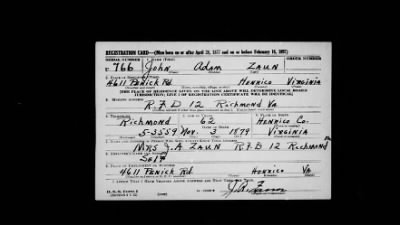 REGISTRATION CARD—(Men born on or after April 28, 1877 and on or before February 16, 1897)
SERIAL NUMBER 1. NAME (Print) ORDER NUMBER
U 766 John Adam Zaun
2. PLACE OF RESIDENCE (Print)
4611 Penick Rd. Henrico Virginia
[THE PLACE OF RESIDENCE GIVEN ON THE LINE ABOVE WILL DETERMINE LOCAL BOARD
JURISDICTION; LINE 2 OF REGISTRATION CERTIFICATE WILL BE IDENTICAL]
3. MAILING ADDRESS
R.F.D 12 Richmond Va
4. TELEPHONE 5. AGE IN YEARS 6. PLACE OF BIRTH
Richmond 62 Henrico Co.
DATE OF BIRTH
5-3559 Nov. 3 1879 Virginia
7. NAME AND ADDRESS OF PERSON WHO WILL ALWAYS KNOW YOUR ADDRESS
Mrs J.A ZAUN R.F.D 12 Richmond
8. EMPLOYER'S NAME AND ADDRESS
Self
9. PLACE OF EMPLOYMENT OR BUSINESS
4611 Penick Rd. Henrico Va
I AFFIRM THAT I HAVE VERIFIED ABOVE ANSWERS AND THAT THEY ARE TRUE.
D. S. S. Form 1
J.A. Zaun